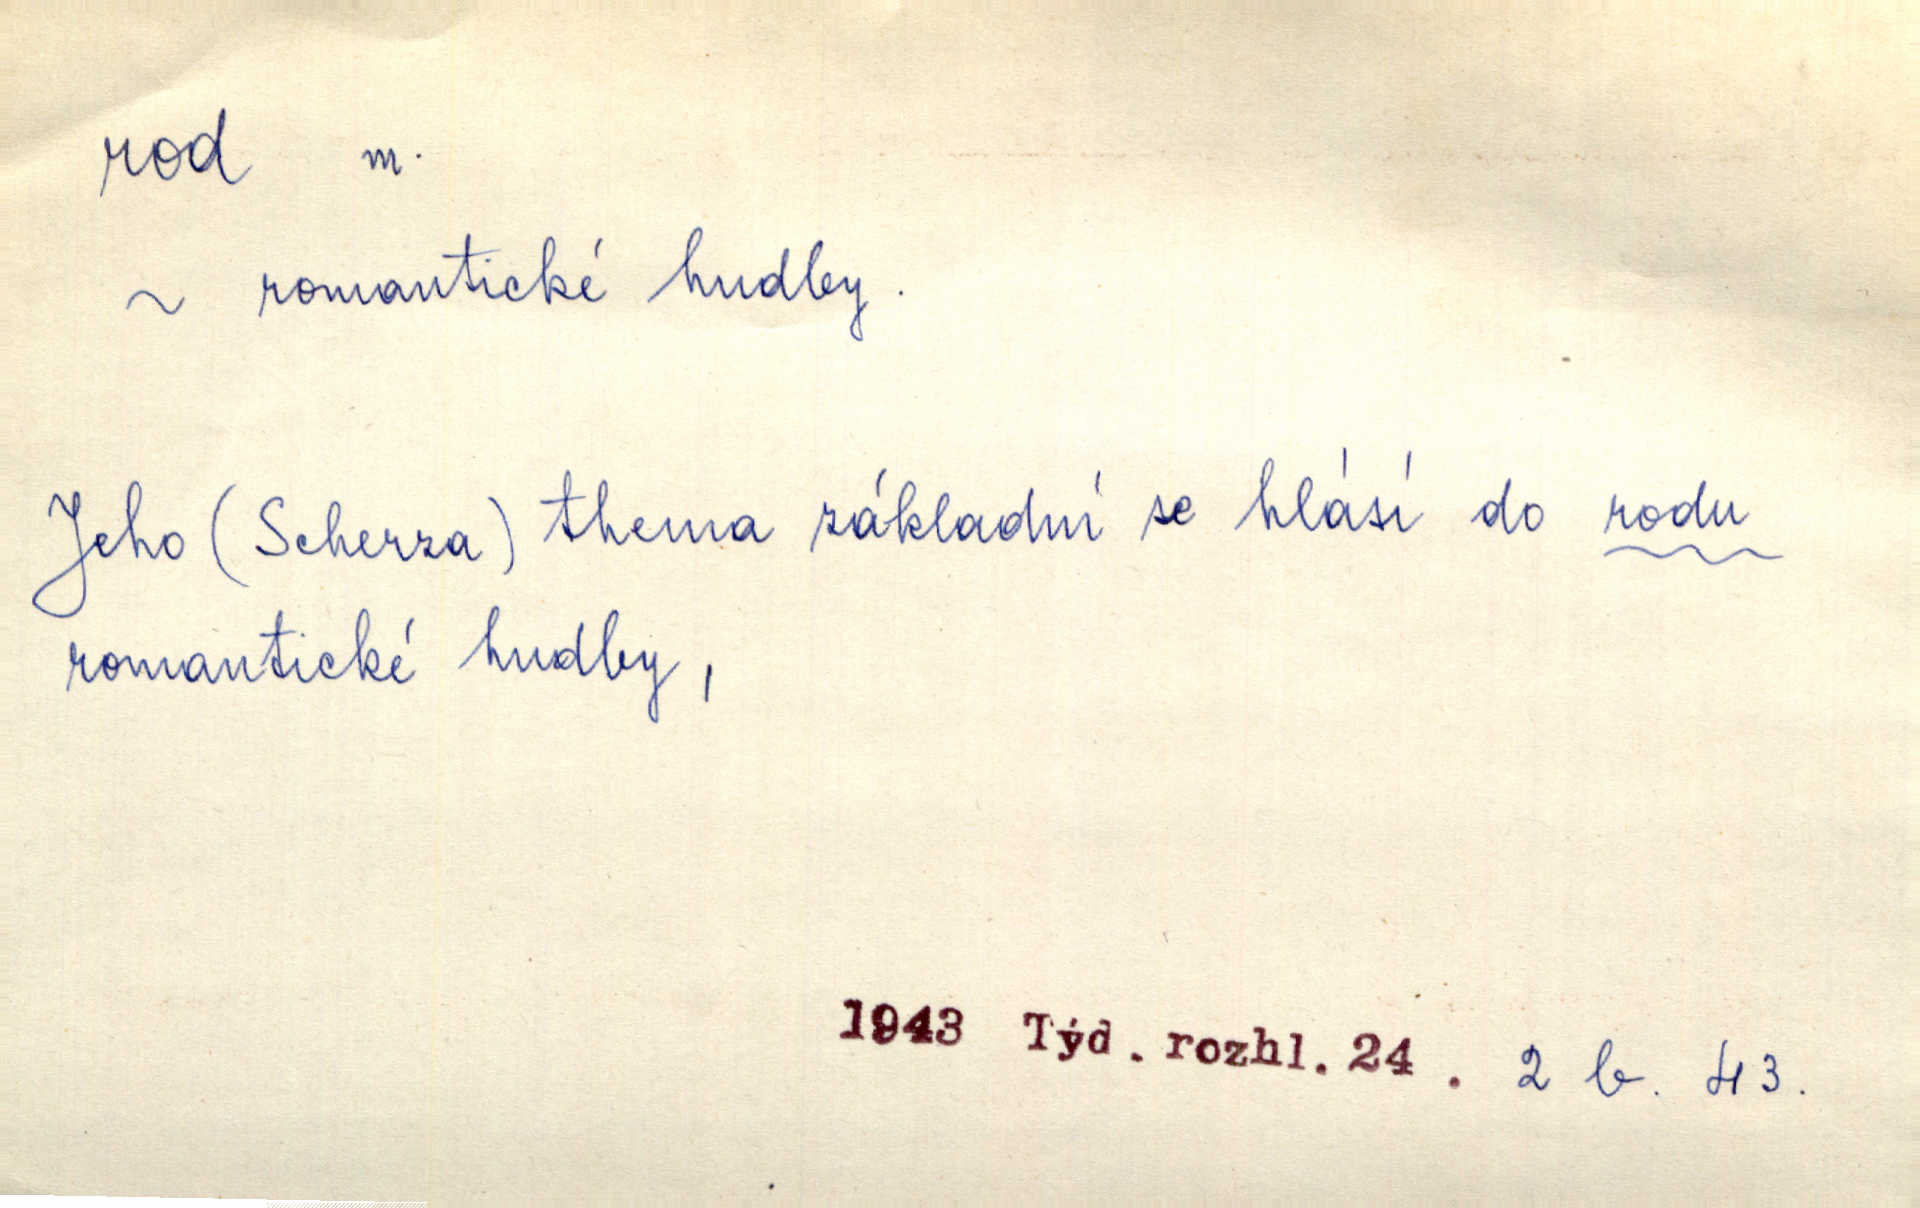 rod m.
~ romantické hudby.
Jeho (Scherza) thema základní se hlásí do rodu
romantické hudby,
1943 Týd. rozhl. 24. 2 b. 43.